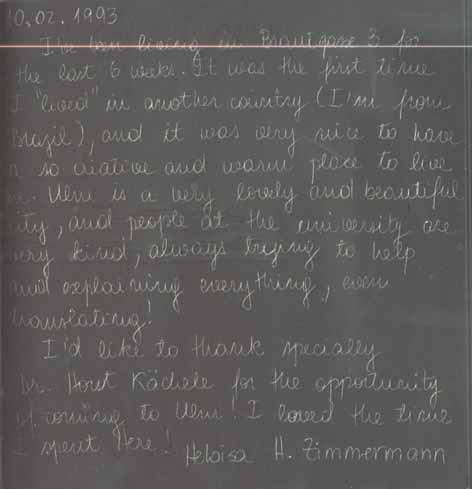 10.02.1993
I've been living in Brautgasse 3 for
the last 6 weeks. It was the first time
I "lived" in another country (I'm from
Brazil), and it was very nice to have
so criative and warm place to live
Ulm is a very lovely and beautiful
ity, and people at the university are
very kind, always trying to help
and explaining everything, even
translating!
I'd like to thank specially
Dr. Horst Kächele for the opportunity
of coming to Ulm! I loved the time
I spent Here!
Heloisa H. Zimmermann